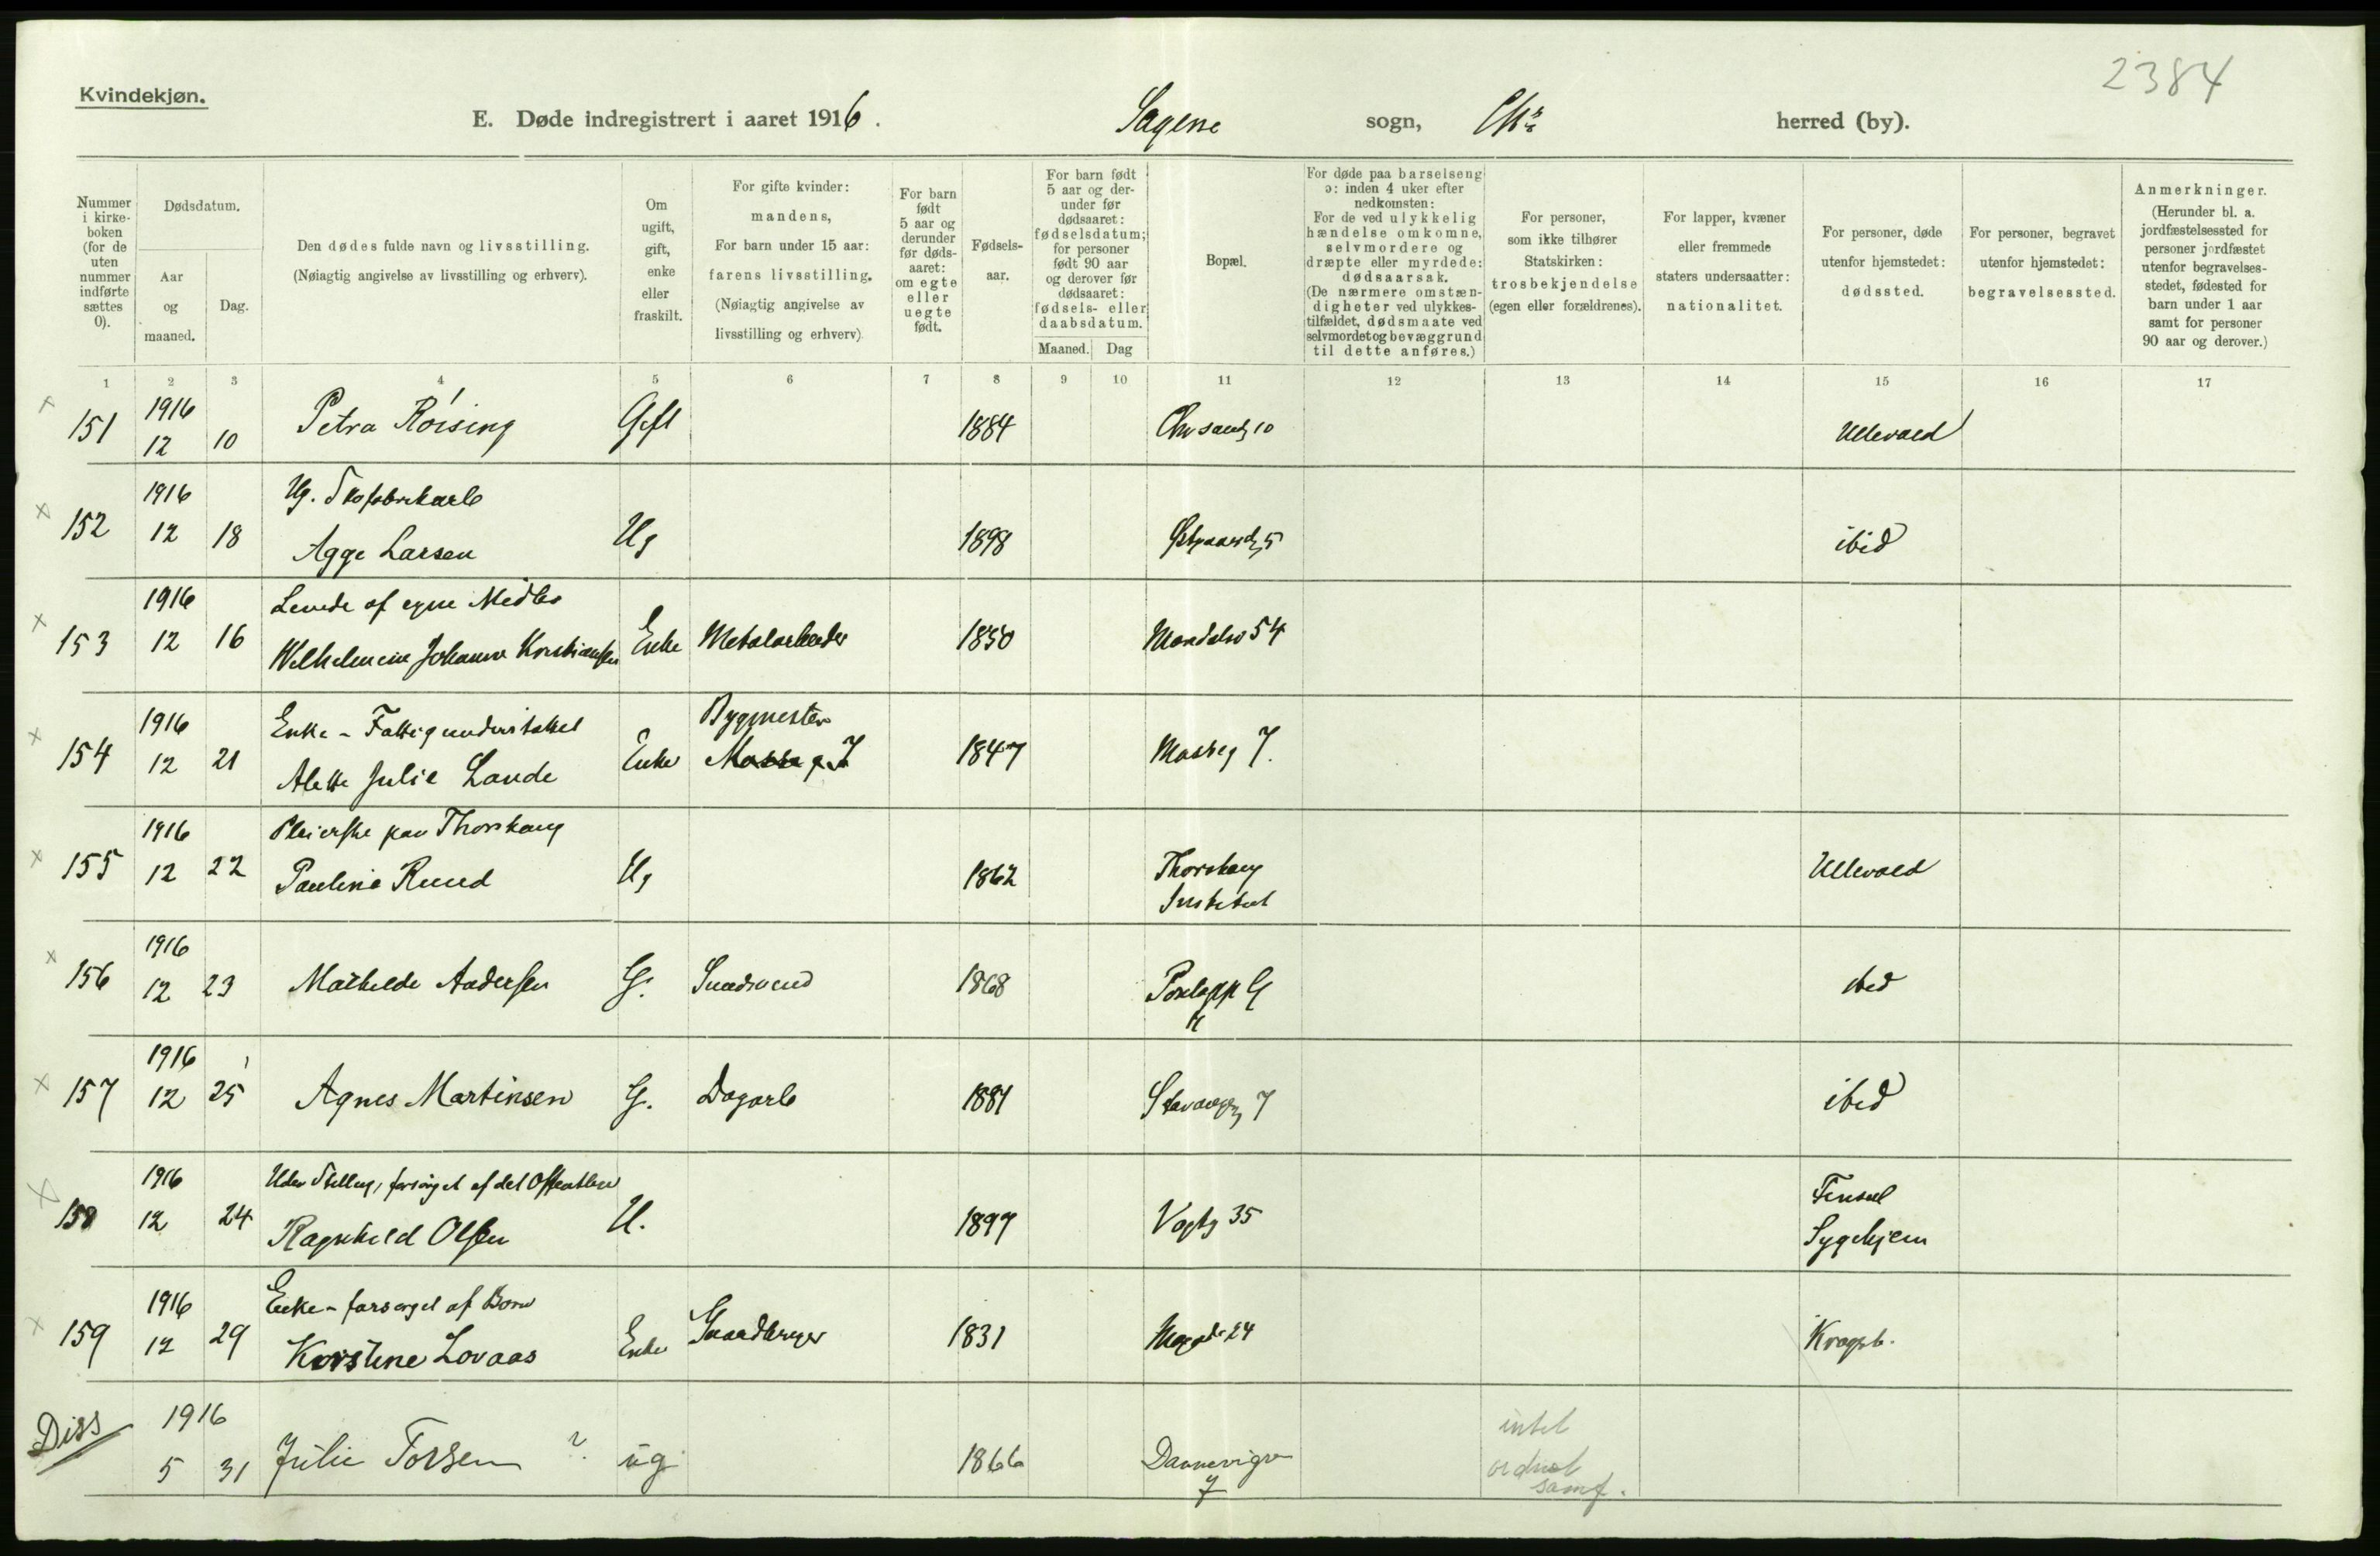 2384
Kvindekjøn.
E. Døde indregistrert i aaret 1916. Sagene sogn, Chr. herred (by).
Nummer i kirkeboken (for de uten nummer indførte sættes 0).
Dødsdatum.
Aar og maaned.
Dag.
Den dødes fulde navn og livsstilling.
(Nøiagtig angivelse av livsstilling og erhverv).
Om ugift, gift, enke eller fraskilt.
For gifte kvinder: mandens,
For barn under 15 aar: farens livsstilling.
(Nøiagtig angivelse av livsstilling og erhverv)
For barn født 5 aar og derunder før dødsaaret: om egte eller uegte født.
Fødselsaar.
For barn født 5 aar og derunder før dødsaaret: fødselsdatum; for personer født 90 aar og derover før dødsaaret: fødsels- eller daabsdatum.
Maaned. Dag
Bopæl.
For døde paa barselseng ɔ: inden 4 uker efter nedkomsten:
For de ved ulykkelig hændelse omkomne, selvmordere og dræpte eller myrdede: dødsaarsak.
(De nærmere omstændigheter ved ulykkestilfældet, dødsmaate ved selvmordet og bevæggrund til dette anføres.)
For personer, som ikke tilhører Statskirken: trosbekjendelse (egen eller forældrenes).
For lapper, kvæner eller fremmede staters undersaatter: nationalitet.
For personer, døde utenfor hjemstedet: dødssted.
For personer, begravet utenfor hjemstedet: begravelsessted.
Anmerkninger.
(Herunder bl. a. jordfæstelsessted for personer jordfæstet utenfor begravelsesstedet, fødested for barn under 1 aar samt for personer 90 aar og derover.)
1 2 3 4 5 6 7 8 9 10 11 12 13 14 15 16 17
151 1916 12 10 Petra Röising Gift 1884 Chr sandg 10 Ullevaal
152 1916 12 18 Ug. Skofabrikarb
Agge Larsen Ug 1898 Østgaardg 5 ibid
153 1916 12 16 Levede af egne Midler
Wilhelmine Johanne Kristiansen Enke Metalarbeider 1850 Maridalsv 54
154 1916 12 21 Enke - Fattigunderstøttet
Alette Julie Lande Enke Bygmester 1847 Mosseg 7.
155 1916 12 22 Pleierske paa Thorshaug
Pauline Ruud Ug 1862 Thorshaug Institut Ullevaal
156 1916 12 23 Mathilde Andersen G. 1868 ibid
157 1916 12 25 Agnes Martinsen G. Dagarb 1881 Stavangerg 7 ibid
158 1916 12 24 Uden Stilling, forsörget af det Offentlige
Ragnhild Olsen U. 1897 Vogtsg 35 Sygehjem
159 1916 12 29 Enke - forsörget af Børn
Kirstine Lovaas Enke Gaardbruger 1831 24 Krogst.
Diss 1916 5 31 Julie Torsen ? ug 1866 Dannevigsv 7 intet ordnet samf.